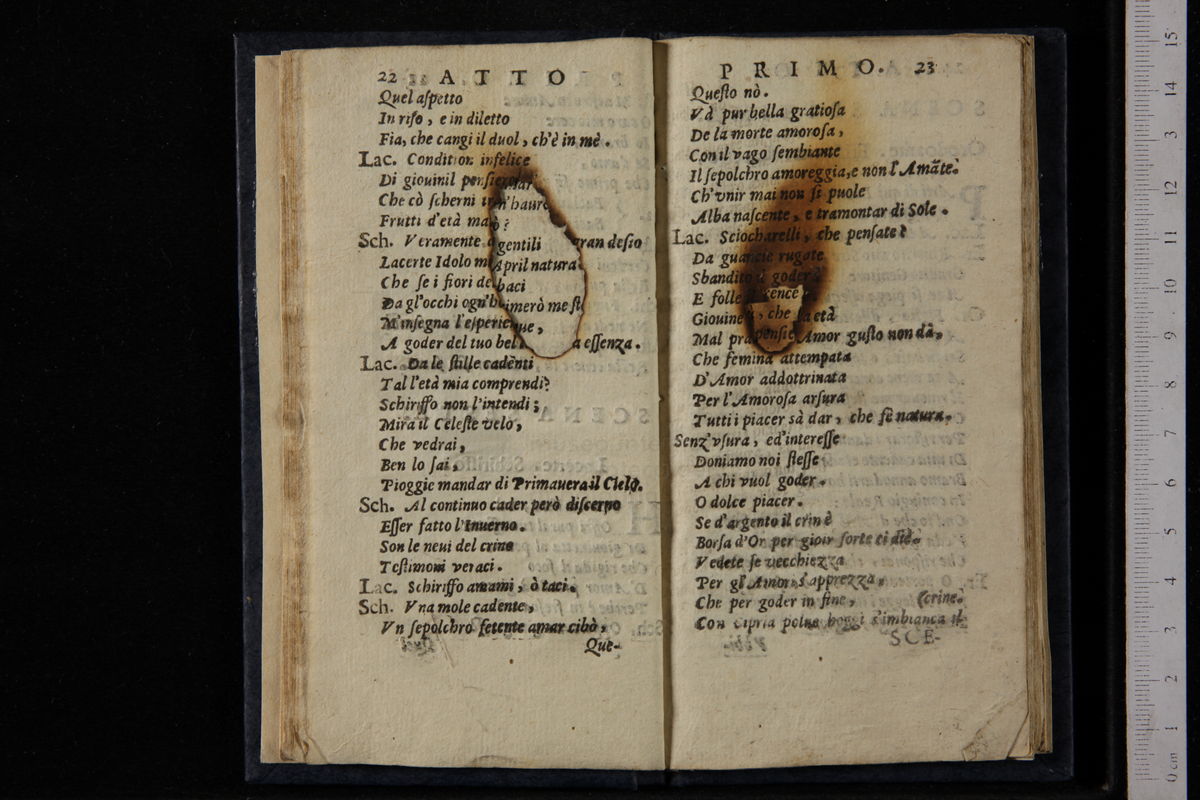 22 ATTO
Quel aſpetto
In riſo, e in diletto
Fia, che cangi il duol, ch'è in mè.
Lac. Condition infelice
Di giouinil penſier
Che cò ſcherni n'haurò
Frutti d'età ?
Sch. Veramente gentili gran deſio
Lacerte Idolo m April natura
Che ſe i fiori de baci
Da gl'occhi ogn'h imerò me ſt
M'inſegna l'eſperie ue,
A goder del tuo bel eſſenza.
Lac. Da le ſtille cadènti
Tal l'età mia comprendi?
Schiriffo non l'intendi;
Mira il Celeſte velo,
Che vedrai,
Ben lo ſai,
Pioggie mandar di Primauera il Cielo.
Sch. Al continuo cader però diſcerno
Eſſer fatto l'Inuerno.
Son le neui del crine
Teſtimoni veraci.
Lac. Schiriffo amami, ò taci.
Sch. Vna mole cadente,
Vn ſepolchro fetente amar cibò,
Que-
PRIMO. 23
Queſto nò.
Và pur bella gratioſa
De la morte amoroſa,
Con il vago ſembiante
Il ſepolchro amoreggia, e non l'Amãte.
Ch'vnir mai non ſi puole
Alba naſcente, e tramontar di Sole.
Lac. Sciocharelli, che penſate?
Da guancie rugate
Sbandito il goder
E folle cence
Giouine , che la età
Mal pra penſie Amor guſto non dà,
Che femina attempata
D'Amor addottrinata
Per l'Amoroſa arſura
Tutti i piacer sà dar, che fè natura.
Senz'vſura, ed'intereſſe
Doniamo noi ſteſſe
A chi vuol goder.
O dolce piacer.
Se d'argento il crin è
Borſa d'Or per gioir ſorte ci diè.
Vedete ſe vecchiezza
Per gl'Amor s'apprezza,
Che per goder in fine, (crine.
Con Cipria polue hoggi s'imbianca il
SCE-
15
14
13
12
11
10
9
8
7
6
5
4
3
2
1
0 cm